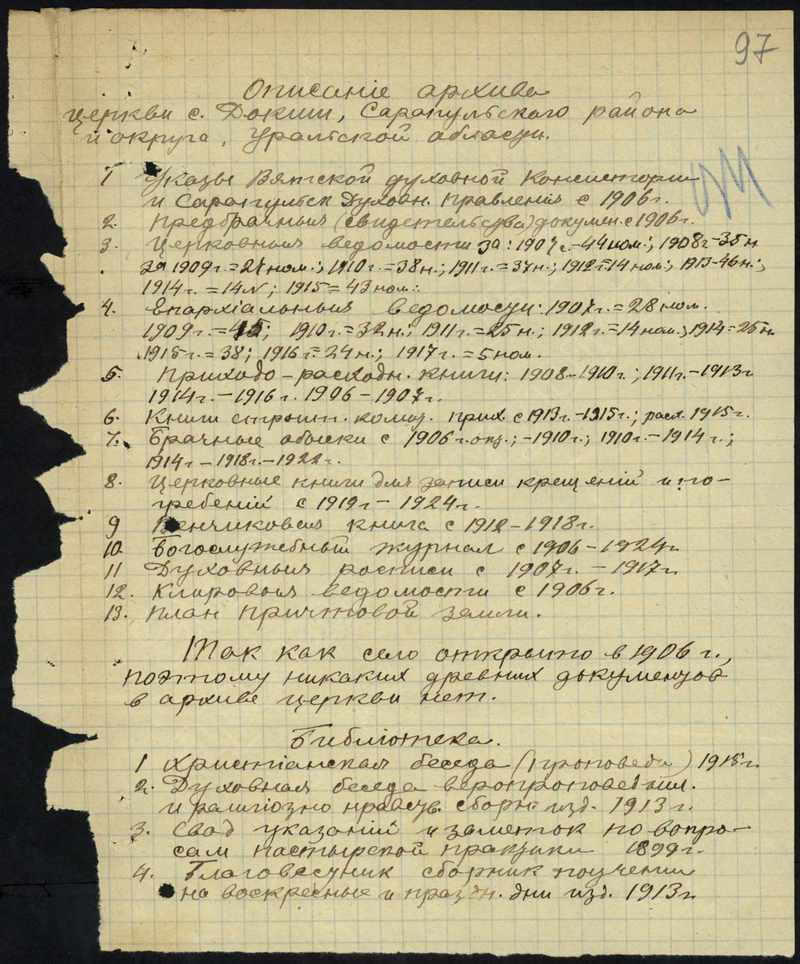 97
Описаніе архива
церкви с. Докши, Сарапульского района
и округа, Уральской области.
1 Указы Вятской духовной Консистории
и Сарапульск Духовн. Правления с 1906 г.
2. Предбрачныя (свидетельства) докумен. с 1906 г.
3. Церковныя ведомости за: 1907 г.-44 ном.; 1908 г-35 н
за 1909 г.=21 ном.; 1910 г.=38 н.; 1911 г.=37 н.; 1912 г=14 ном.; 1913-46 н.;
1914 г.=14 №; 1915=43 ном.
4. Епархіальныя ведомости: 1907 г.=28 ном.
1909 г.=45; 1910 г.=32 н.; 1911 г.=25 н.; 1912 г.=14 ном.; 1914=26 н.
1915 г.=38; 1916 г=24 н.; 1917 г.=5 ном.
5. Приходо-расходн. книги: 1908-1910 г.; 1911 г.-1913 г
1914 г.-1916 г. 1906-1907 г.
6. Книги строит. комит. прих. с 1913 г.-1915 г.; расх. 1915 г.
7. Брачные обыски с 1906 г. ; -1910 г.; 1910 г.-1914 г.;
1914 г-1918 г.-1922 г.
8. Церковные книги для записи крещений и по-
гребений с 1919 г-1924 г.
9 Венчиковая книга с 1912-1918 г.
10. Богослужебный журнал с 1906-1924 г.
11 Духовныя росписи с 1907 г.-1917 г.
12. Клировыя ведомости с 1906 г.
13. План причтовой земли.
Так как село открыто в 1906 г.,
поэтому никаких древних документов
в архиве церкви нет.
Библіотека.
1 Христіанская беседа (проповеди) 1915 г.
2. Духовная беседа
и религіозно нравств. сборн. изд. 1913 г.
3. Свод указаній и заметок по вопро-
сам пастырской практики 1899 г.
4. Благовестник сборник поучений
на воскресные и праздн. дни изд. 1913 г.